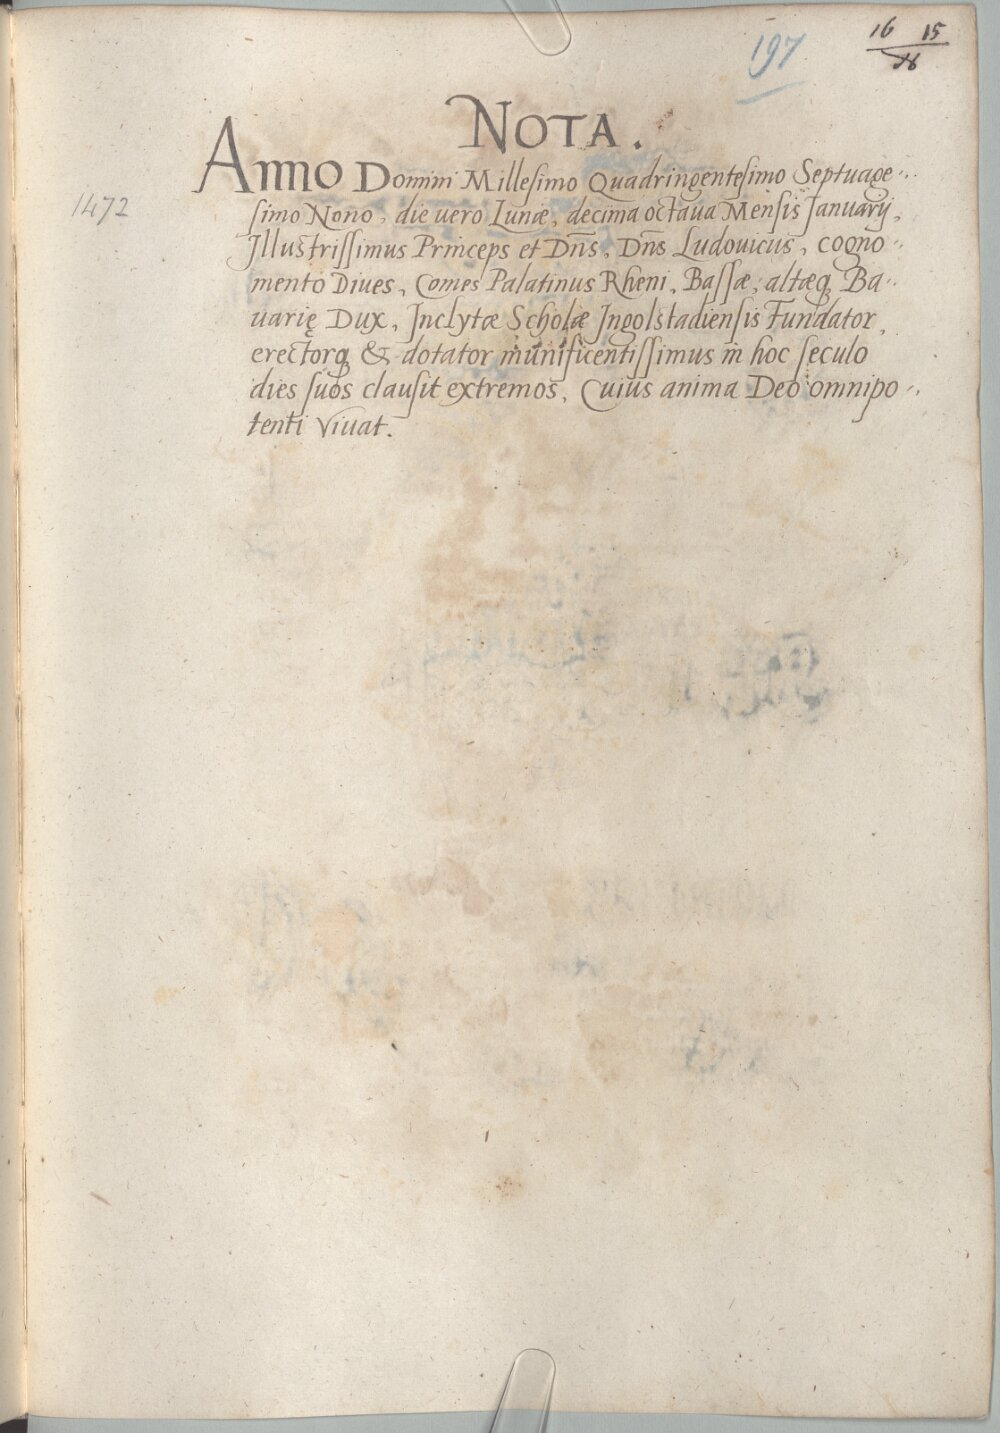 197
16 15
NOTA.
Anno Domini Millesimo Quadringentesimo Septuage-
1472
simo Nono, die vero Lunæ, decima octaua Mensis Januarij,
Jllustrissimus Princeps et Dn̄s, Dn̄s Ludouicus, cogno-
mento Diues, Comes Palatinus Rheni, Bassæ, altæq; Ba-
uarię Dux, Jnclytæ Scholæ Jngolstadiensis Fundator,
erectorq; & dotator munificentissimus in hoc seculo
dies suos clausit extremos, Cuius anima Deo omnipo-
tenti Viuat.